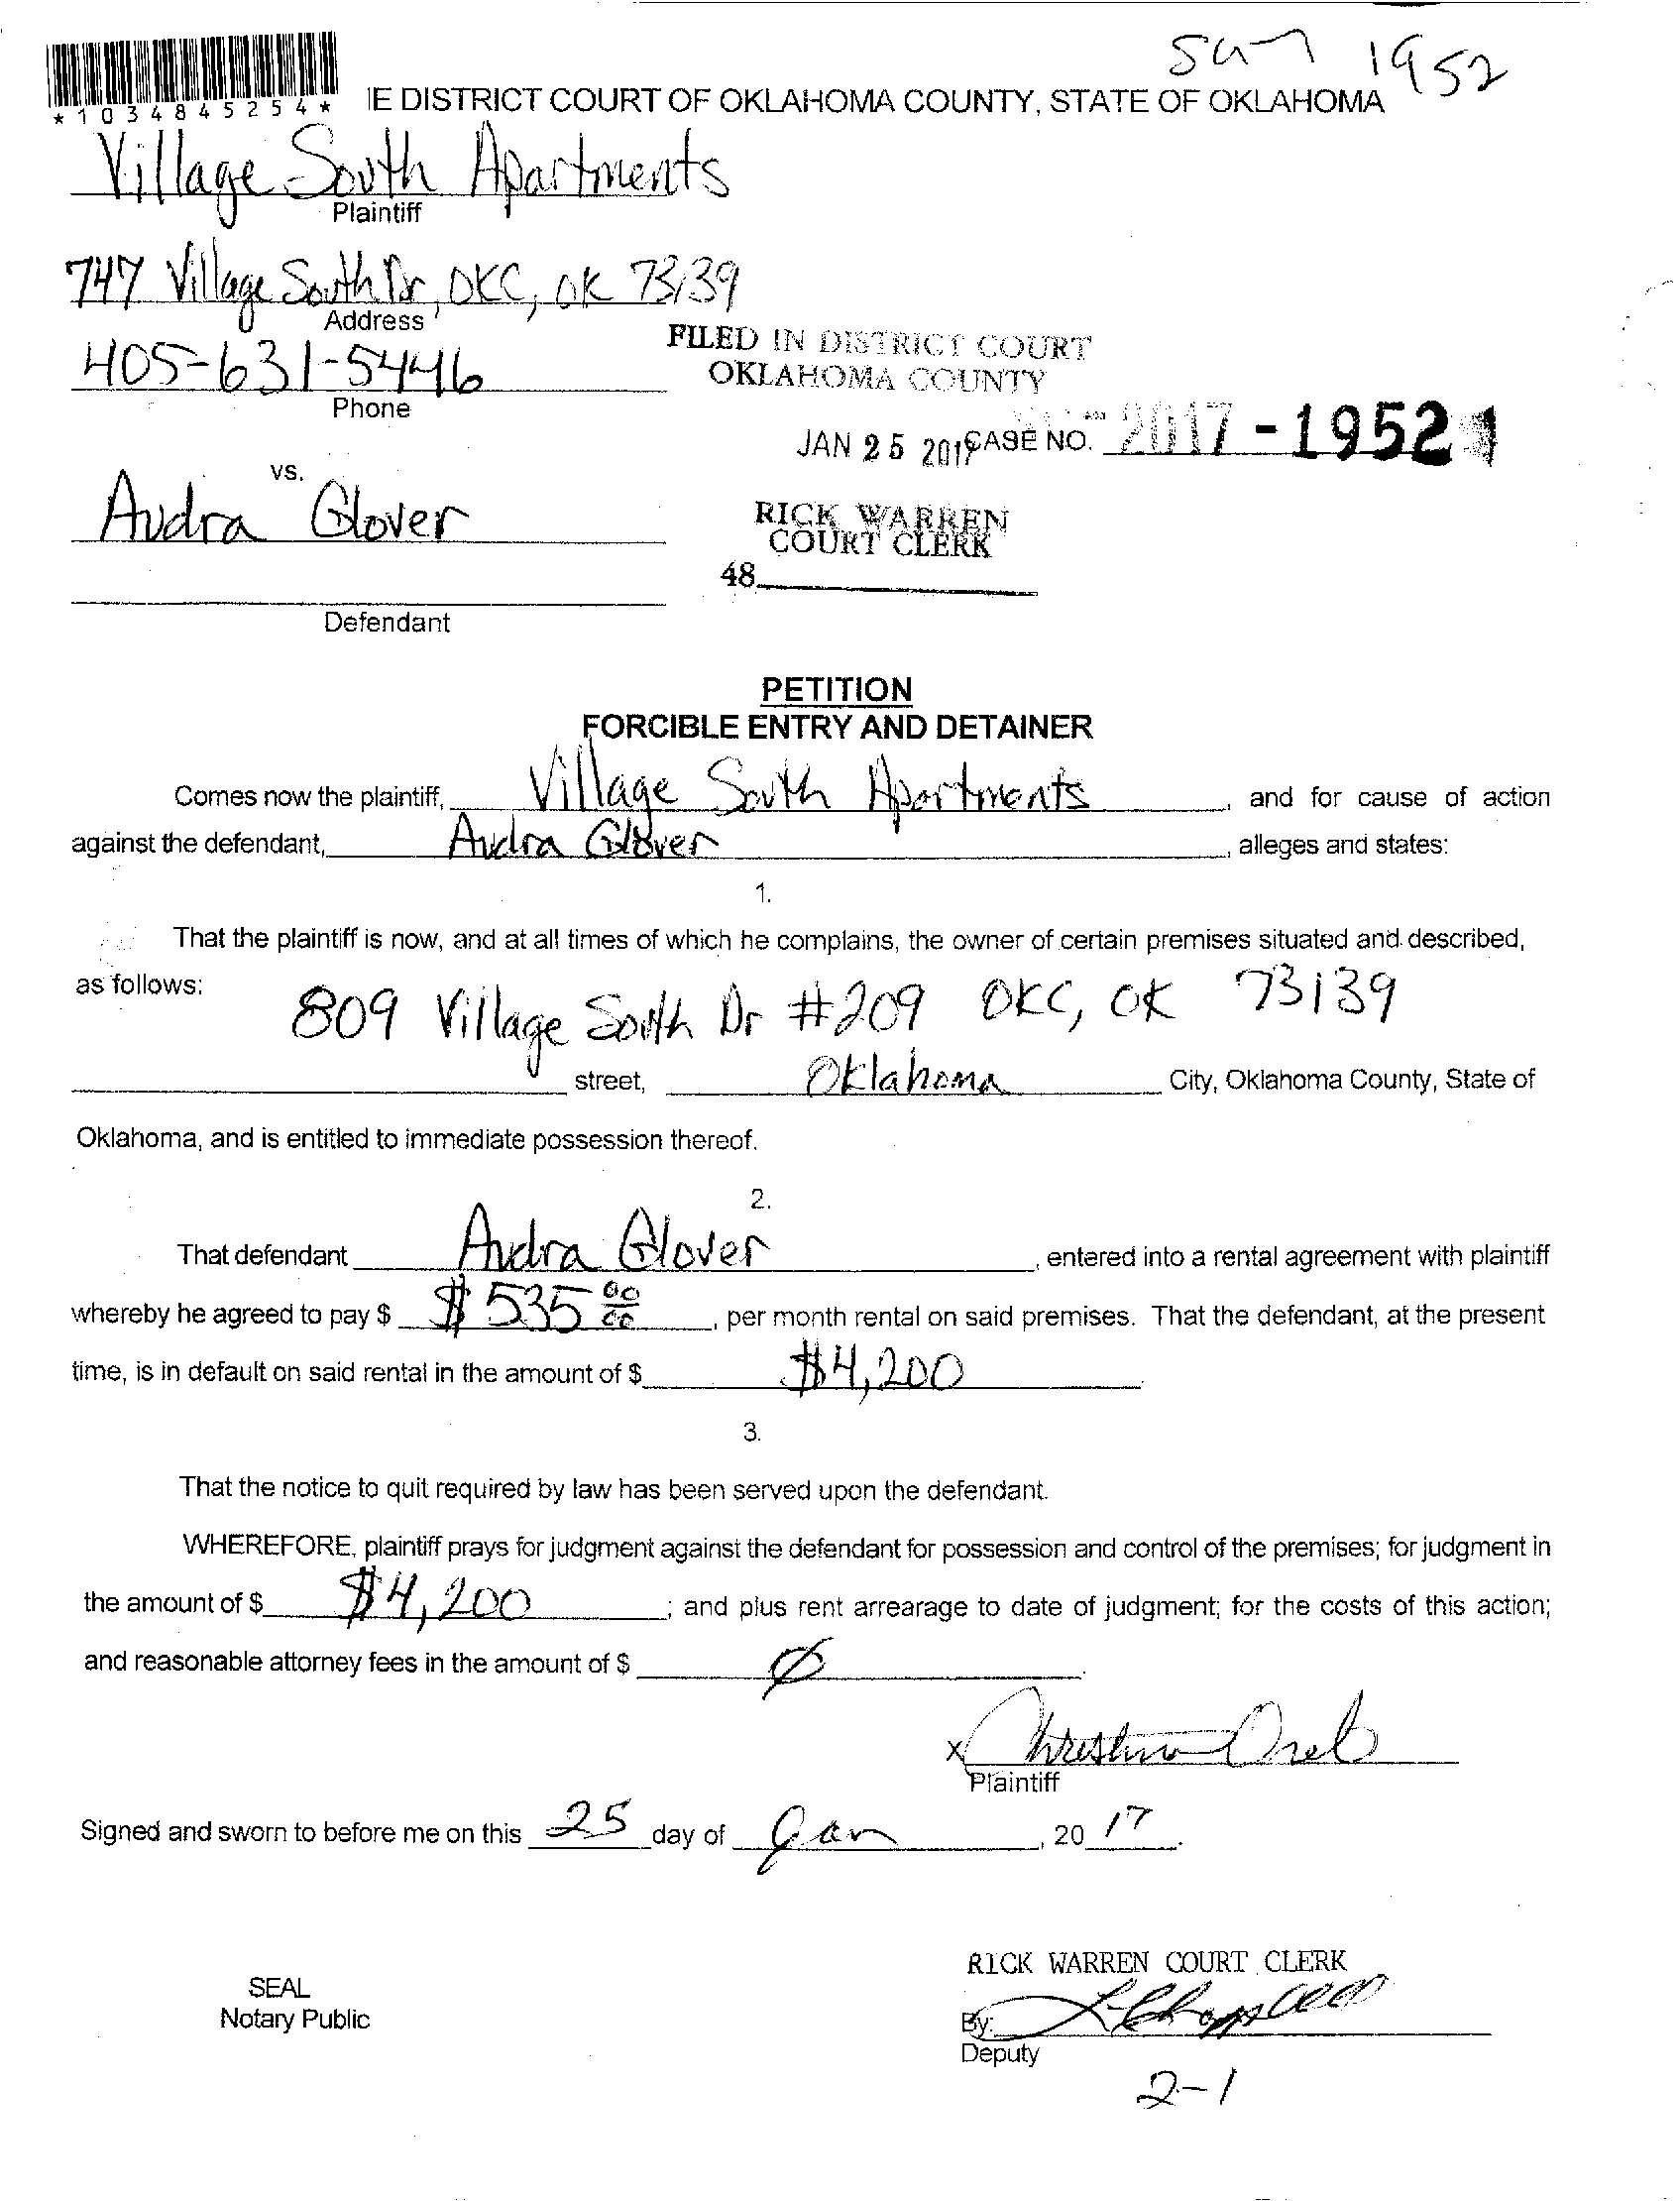 1952
*1034845254*
IE DISTRICT COURT OF OKLAHOMA COUNTY, STATE OF OKLAHOMA
Village South Apartments
Plaintiff
747 Village South Dr, OKC, OK 73139
Address
405-631-5446
Phone
FILED IN DISTRICT COURT
OKLAHOMA COUNTY
JAN 25 2017
CASE NO. 2017-1952
vs.
Audra Glover
RICK WARREN
COURT CLERK
48
Defendant
PETITION
FORCIBLE ENTRY AND DETAINER
Comes now the plaintiff, Village South Apartments, and for cause of action
against the defendant, Audra Glover, alleges and states:
1.
That the plaintiff is now, and at all times of which he complains, the owner of certain premises situated and described,
as follows:
809 Village South Dr #209 OKC, OK 73139
street, Oklahoma City, Oklahoma County, State of
Oklahoma, and is entitled to immediate possession thereof.
2.
That defendant Audra Glover, entered into a rental agreement with plaintiff
whereby he agreed to pay $ $535 00, per month rental on said premises. That the defendant, at the present
time, is in default on said rental in the amount of $ $4,200.
3.
That the notice to quit required by law has been served upon the defendant.
WHEREFORE, plaintiff prays for judgment against the defendant for possession and control of the premises; for judgment in
the amount of $ $4,200; and plus rent arrearage to date of judgment; for the costs of this action;
and reasonable attorney fees in the amount of $ Ø.
X
Plaintiff
Signed and sworn to before me on this 25 day of Jan, 20 17.
RICK WARREN COURT CLERK
SEAL
Notary Public
By:
Deputy
2-1